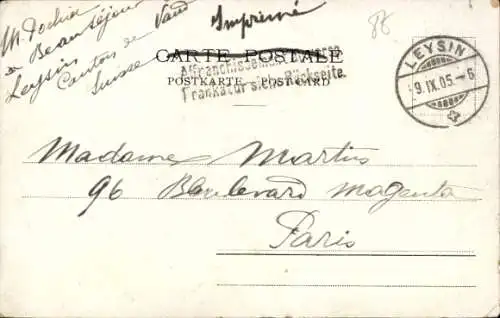 Beauséjour
Leysin
Canton de Vaud
Suisse
Imprimé
CARTE POSTALE
POSTKARTE - POST CARD
Frankatur siehe Rückseite.
LEYSIN
9.IX.05.-6
Madame Martin
96 Boulevard Magenta
Paris